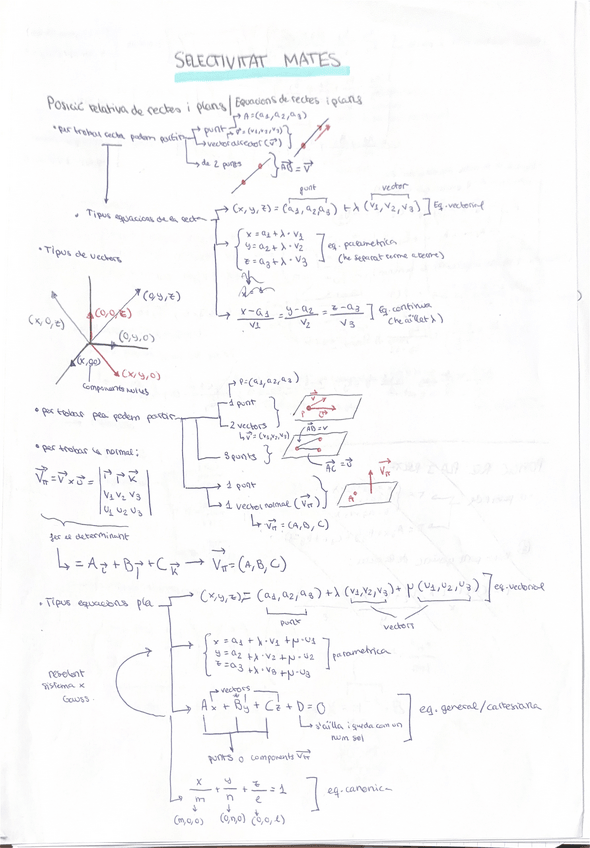 SELECTIVITAT MATES
Posició relativa de rectes i plans / Equacions de rectes i plans
• per trobar recta podem partir
punt → A = (a1, a2, a3)
vector director (v⃗)
v⃗ = (v1, v2, v3)
de 2 punts } AB⃗ = v⃗
• Tipus equacions de la recta
punt vector
(x, y, z) = (a1, a2, a3) + λ (v1, v2, v3) ] Eq. vectorial
x = a1 + λ · v1
y = a2 + λ · v2
z = a3 + λ · v3
eq. parametrica
(he separat terme a terme)
x - a1 / v1 = y - a2 / v2 = z - a3 / v3 ] Eq. continua
(he aïllat λ)
• Tipus de vectors
(x, 0, z)
(0, 0, z)
(0, y, z)
(0, y, 0)
(x, 0, 0)
(x, y, 0)
components nul·les
• per trobar pla podem partir
P = (a1, a2, a3)
1 punt
2 vectors
v⃗ = (v1, v2, v3)
P v⃗ u⃗
3 punts }
AB⃗ = v
AC⃗ = u⃗
1 punt
1 vector normal (V⃗π)
V⃗π = (A, B, C)
A V⃗π
• per trobar la normal:
V⃗π = v⃗ × u⃗ =
| i⃗ j⃗ k⃗ |
| v1 v2 v3 |
| u1 u2 u3 |
fer el determinant
= A i⃗ + B j⃗ + C k⃗ → V⃗π = (A, B, C)
• Tipus equacions pla
(x, y, z) = (a1, a2, a3) + λ (v1, v2, v3) + μ (u1, u2, u3) ] eq. vectorial
punt vectors
x = a1 + λ · v1 + μ · u1
y = a2 + λ · v2 + μ · u2
z = a3 + λ · v3 + μ · u3
parametrica
resolent
sistema x
Gauss.
vectors
Ax + By + Cz + D = 0
s'aïlla i queda com un
num sol
eq. general / cartesiana
punts o components V⃗π
x/m + y/n + z/l = 1 ] eq. canonica
(m, 0, 0) (0, n, 0) (0, 0, l)